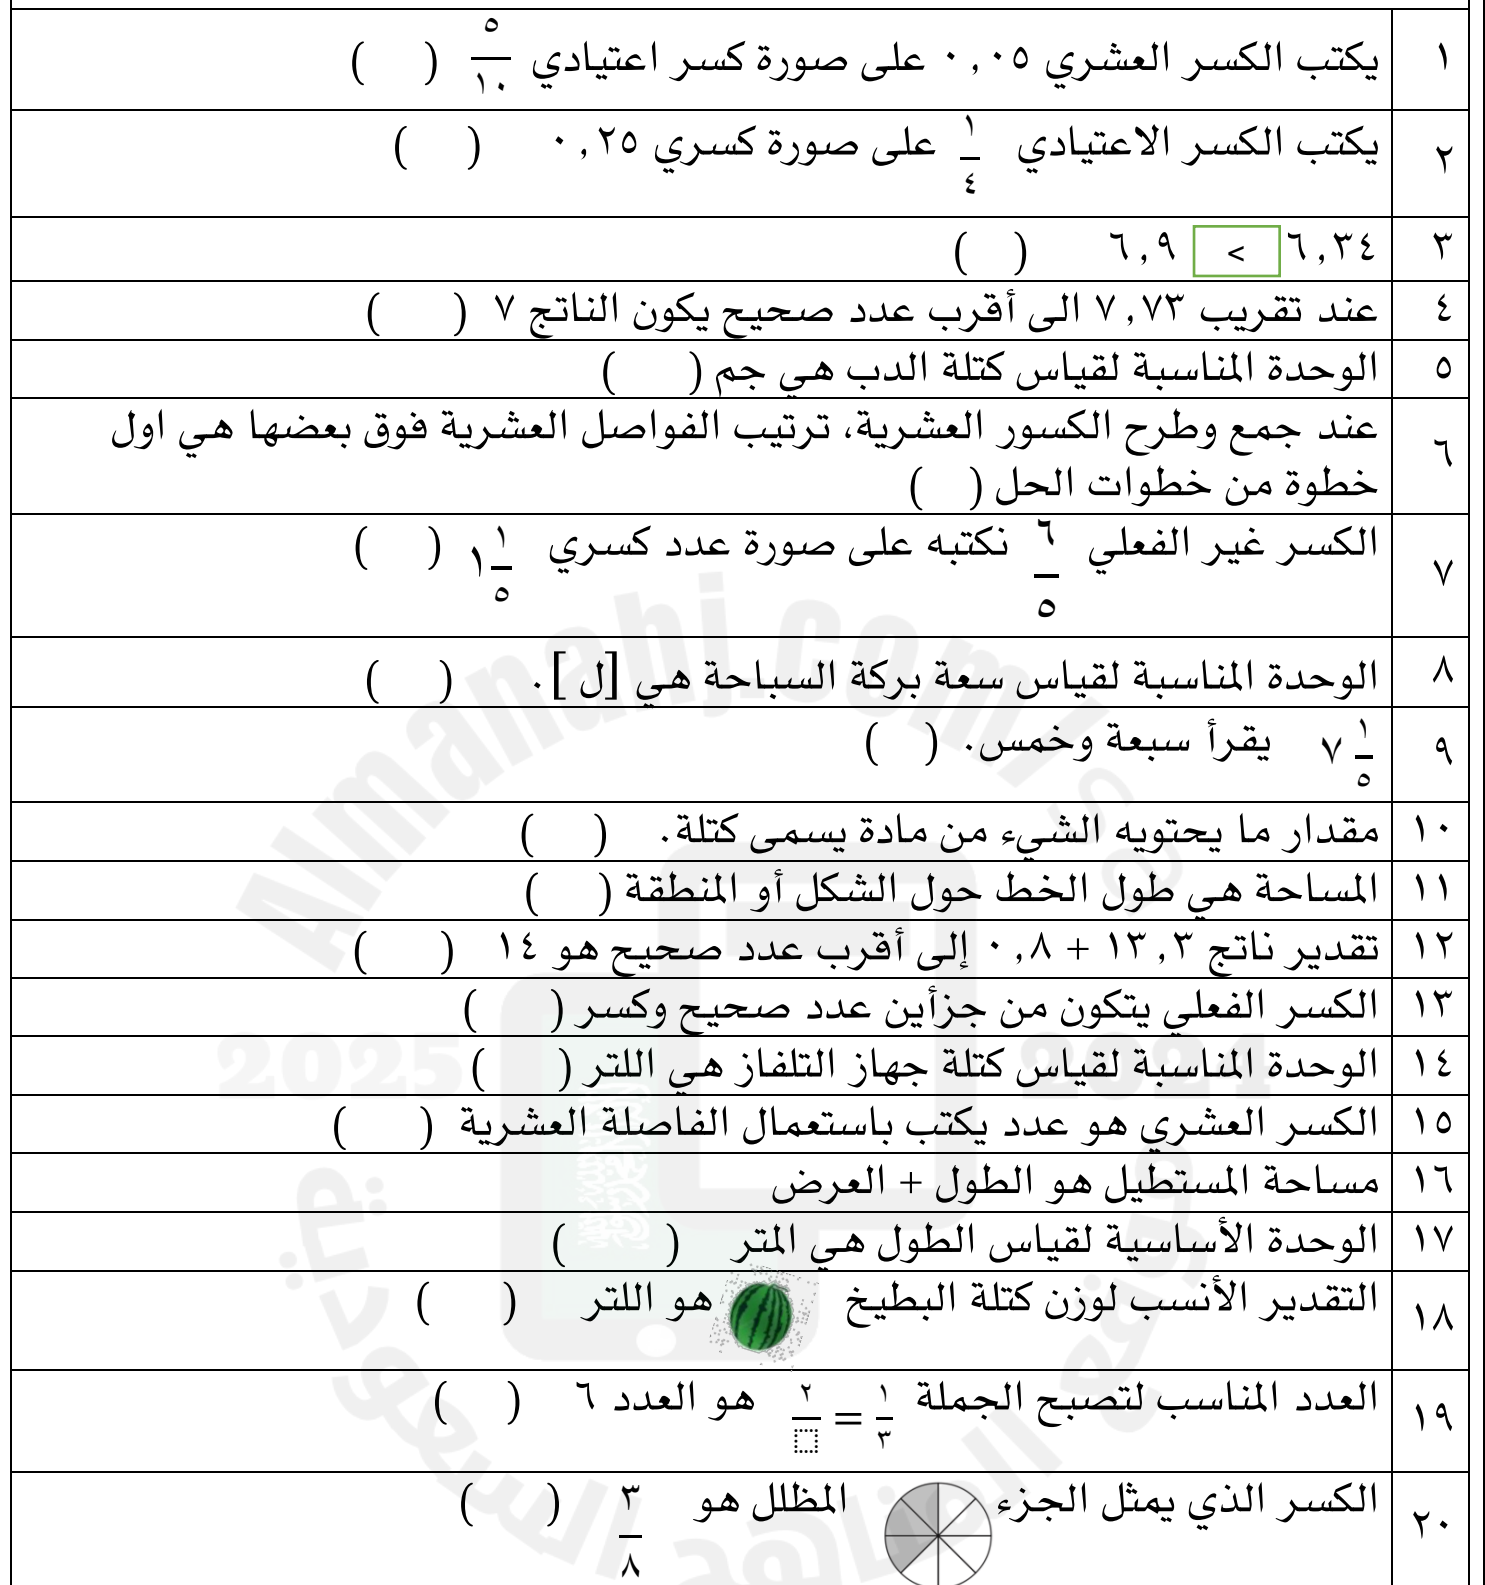 ١ يكتب الكسر العشري ٠,٠٥ على صورة كسر اعتيادي ٥/١٠ ( )
٢ يكتب الكسر الاعتيادي ١/٤ على صورة كسري ٠,٢٥ ( )
٣ ٦,٣٤ > ٦,٩ ( )
٤ عند تقريب ٧,٧٣ الى أقرب عدد صحيح يكون الناتج ٧ ( )
٥ الوحدة المناسبة لقياس كتلة الدب هي جم ( )
٦ عند جمع وطرح الكسور العشرية، ترتيب الفواصل العشرية فوق بعضها هي اول
خطوة من خطوات الحل ( )
٧ الكسر غير الفعلي ٦/٥ نكتبه على صورة عدد كسري ١ ١/٥ ( )
٨ الوحدة المناسبة لقياس سعة بركة السباحة هي [ل]. ( )
٩ ٧ ١/٥ يقرأ سبعة وخمس. ( )
١٠ مقدار ما يحتويه الشيء من مادة يسمى كتلة. ( )
١١ المساحة هي طول الخط حول الشكل أو المنطقة ( )
١٢ تقدير ناتج ١٣,٣ + ٠,٨ إلى أقرب عدد صحيح هو ١٤ ( )
١٣ الكسر الفعلي يتكون من جزأين عدد صحيح وكسر ( )
١٤ الوحدة المناسبة لقياس كتلة جهاز التلفاز هي اللتر ( )
١٥ الكسر العشري هو عدد يكتب باستعمال الفاصلة العشرية ( )
١٦ مساحة المستطيل هو الطول + العرض
١٧ الوحدة الأساسية لقياس الطول هي المتر ( )
١٨ التقدير الأنسب لوزن كتلة البطيخ هو اللتر ( )
١٩ العدد المناسب لتصبح الجملة ١/٣ = ٢/□ هو العدد ٦ ( )
٢٠ الكسر الذي يمثل الجزء المظلل هو ٣/٨ ( )
Almanahj.com/sa
2025 2024
موقع المناهج السعودية